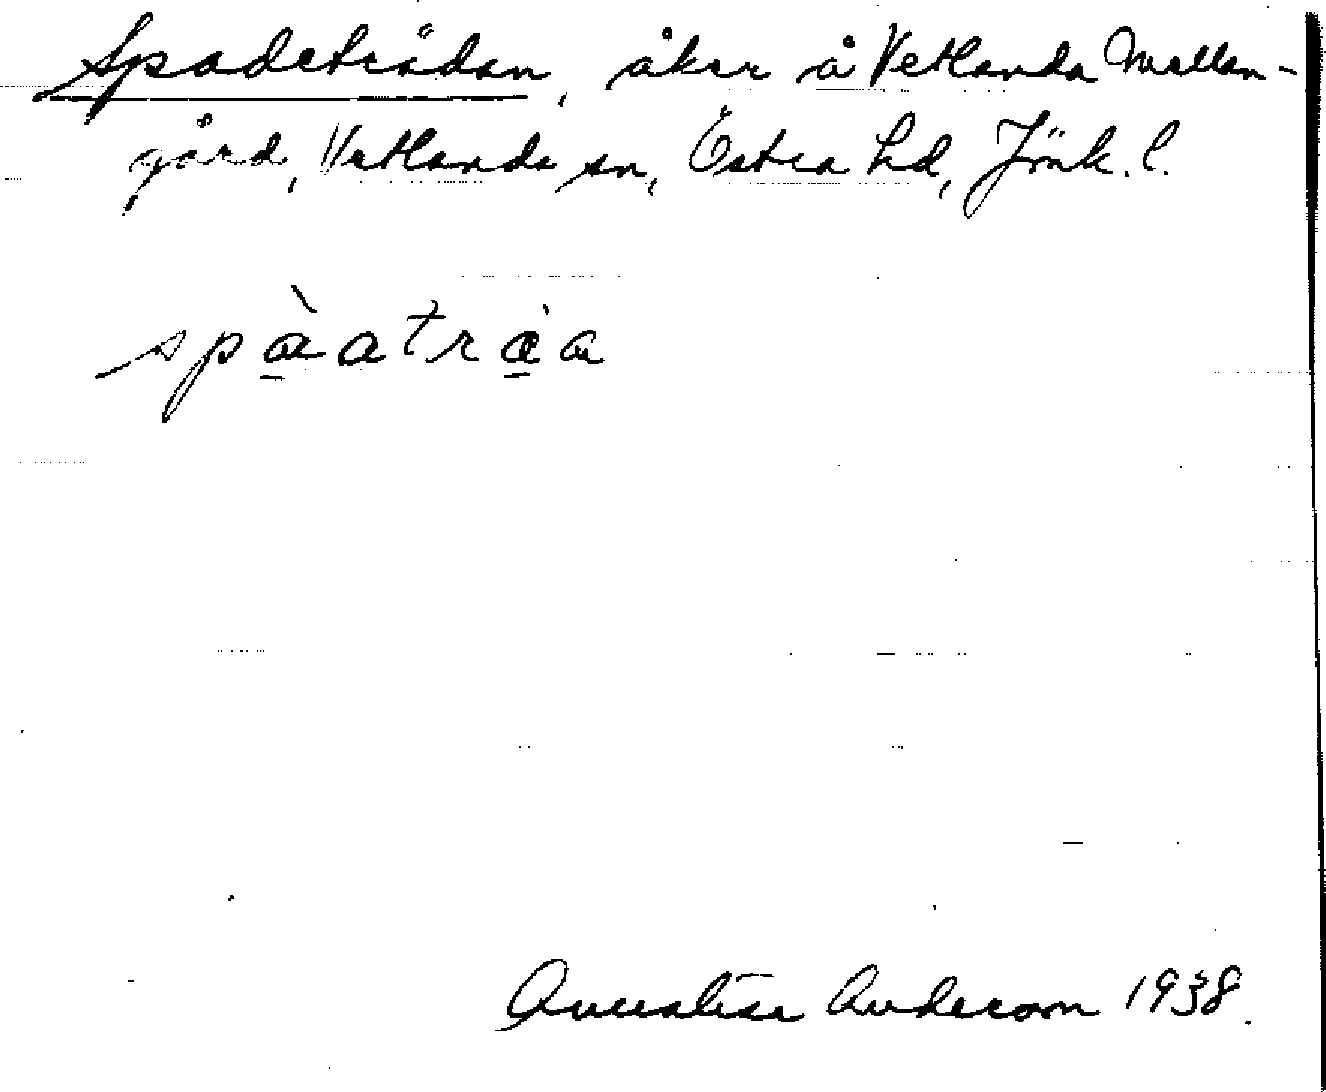 Spadeträdan, åker å Vetlanda Mellan-
gård, Vetlanda sn, Östra hd, Jönk. l.
spàatràa
Anderson 1938.